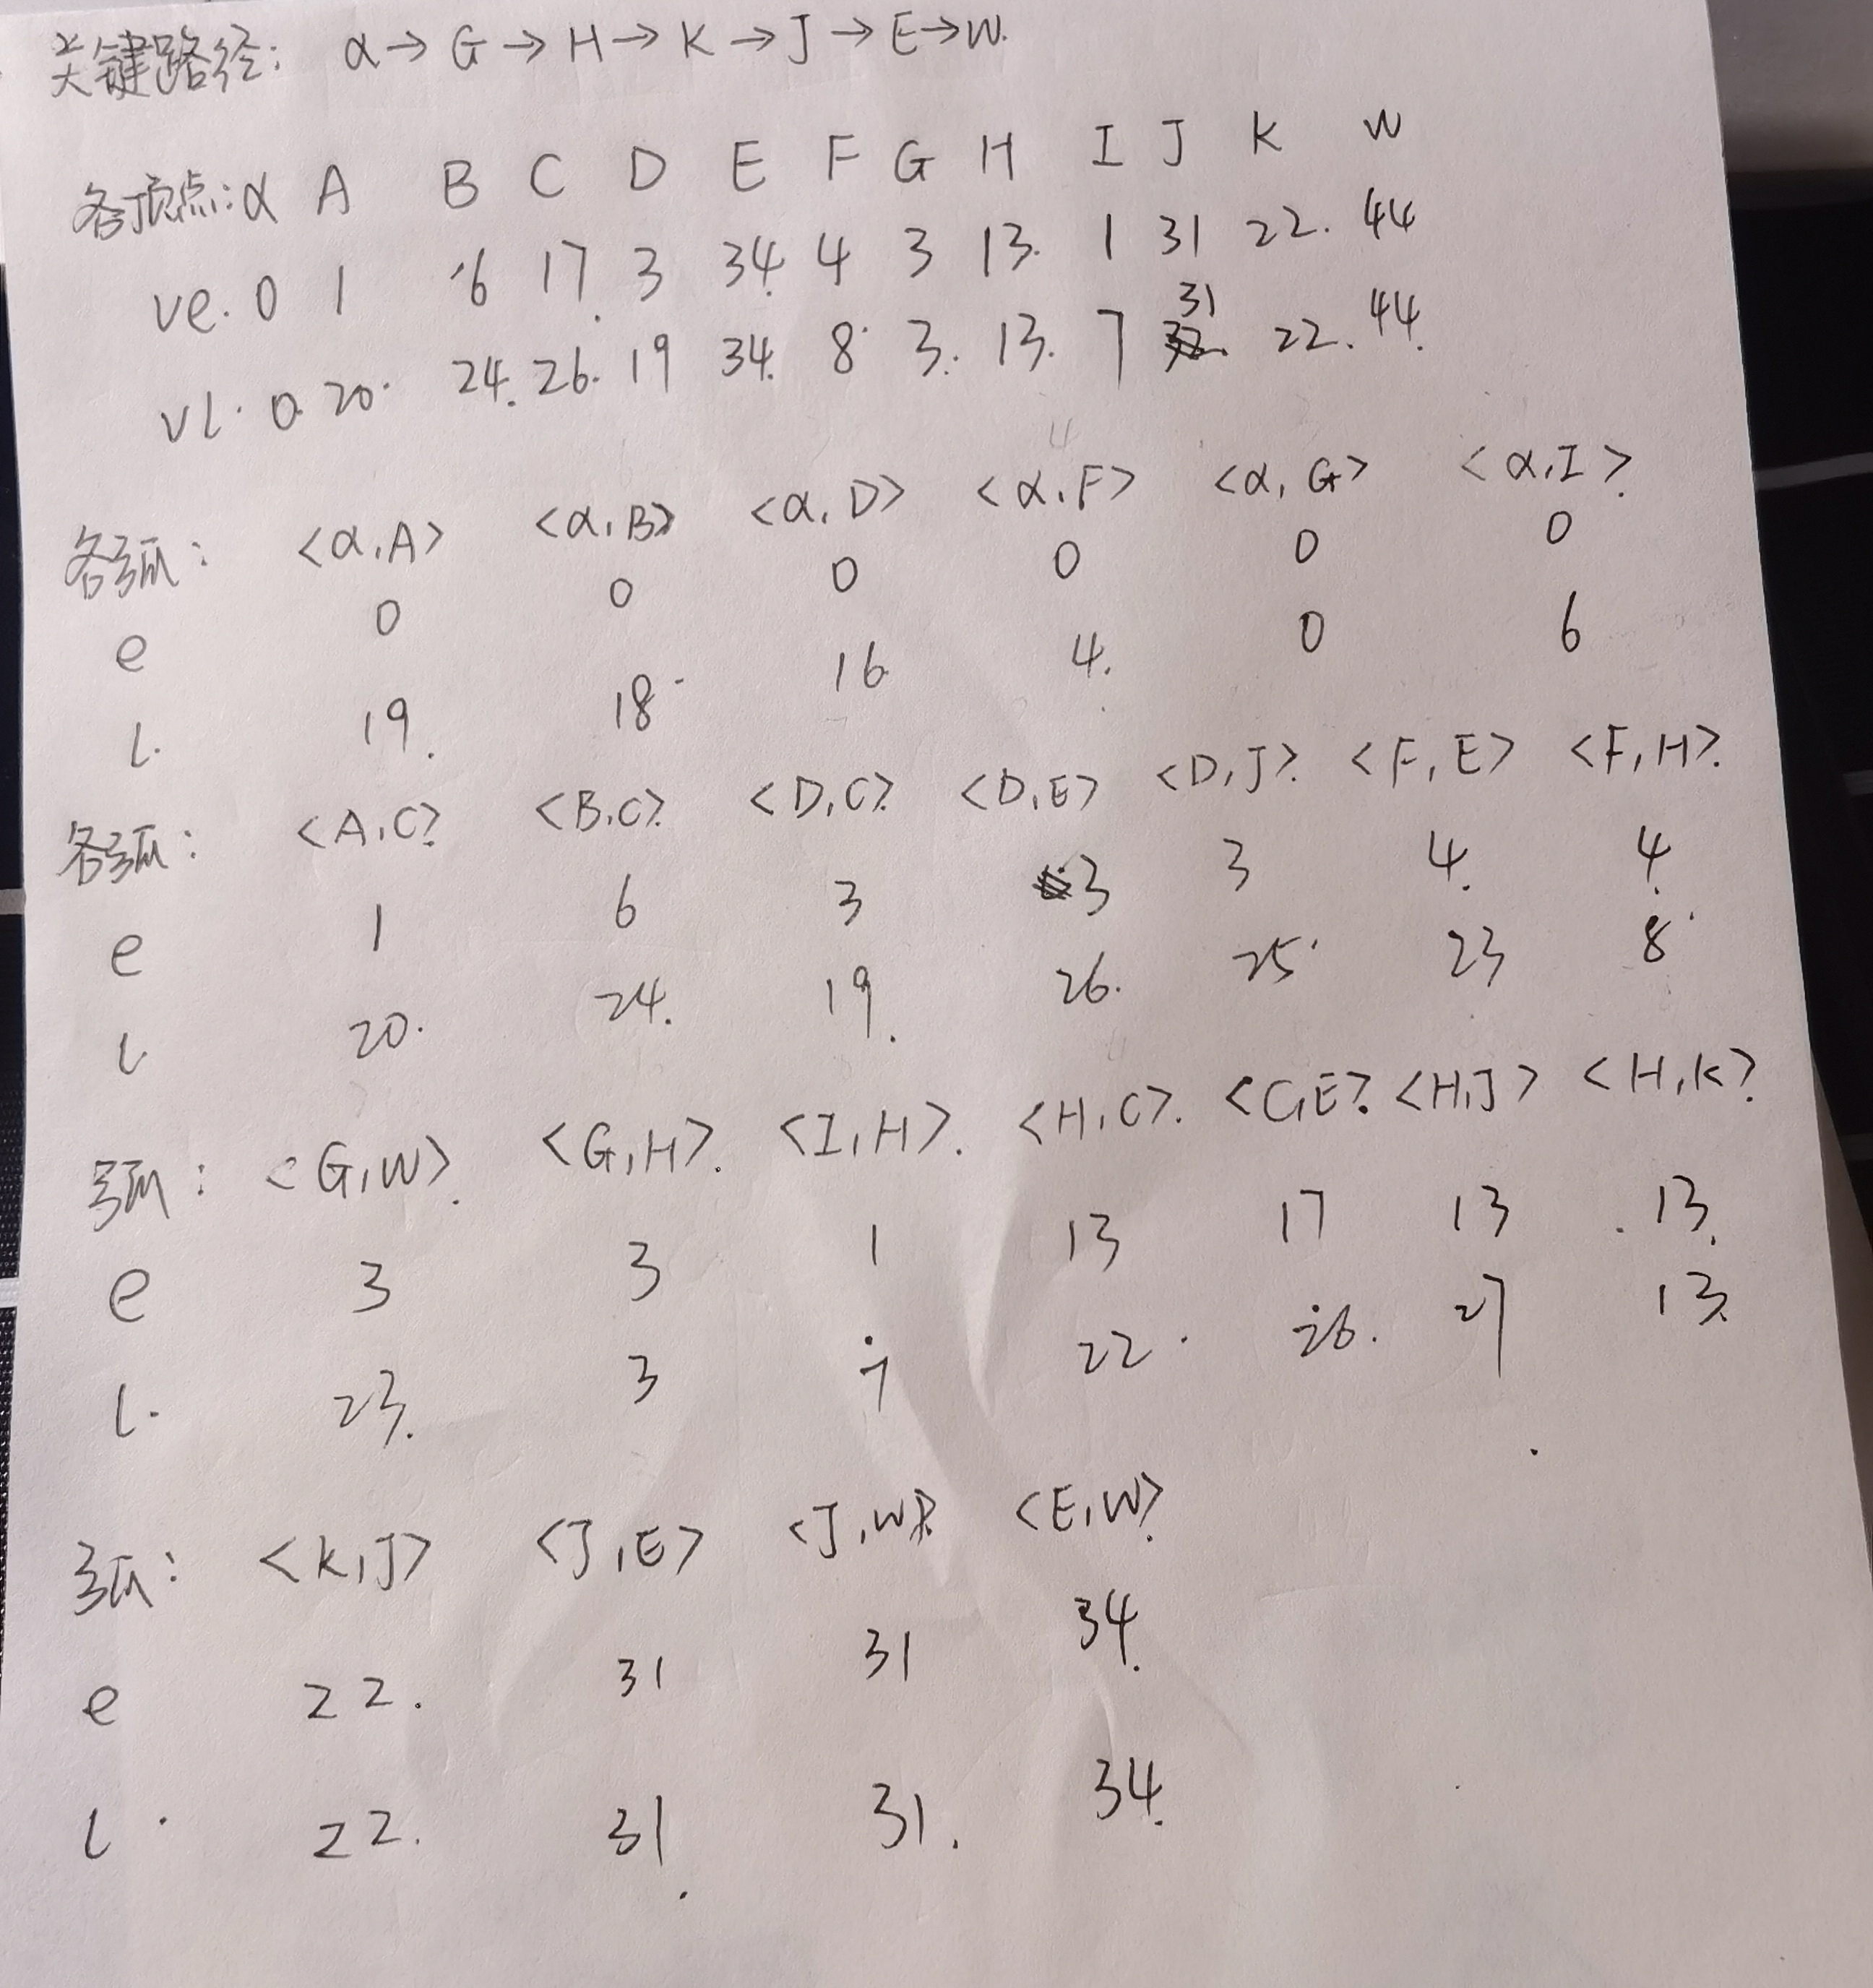 关键路径: α→G→H→K→J→E→W.
各顶点:α A B C D E F G H I J K W
ve. 0 1 6 17. 3 34. 4 3 13. 1 31 22. 44
31
vl. 0. 20. 24. 26. 19 34. 8 3. 13. 7 22. 44.
各弧: <α,A> <α,B> <α,D> <α,F> <α,G> <α,I>
e 0 0 0 0 0 0
l. 19. 18 16 4. 0 6
各弧: <A,C> <B,C> <D,C> <D,E> <D,J> <F,E> <F,H>
e 1 6 3 3 3 4. 4.
l 20. 24. 19. 26. 25 23 8
弧: <G,W> <G,H>. <I,H>. <H,C>. <C,E> <H,J> <H,K>
e 3 3 1 13 17 13 13.
l. 23. 3 7 22 26. 27 13.
弧: <K,J> <J,E> <J,W> <E,W>
e 22. 31 31 34.
l 22. 31. 31. 34.